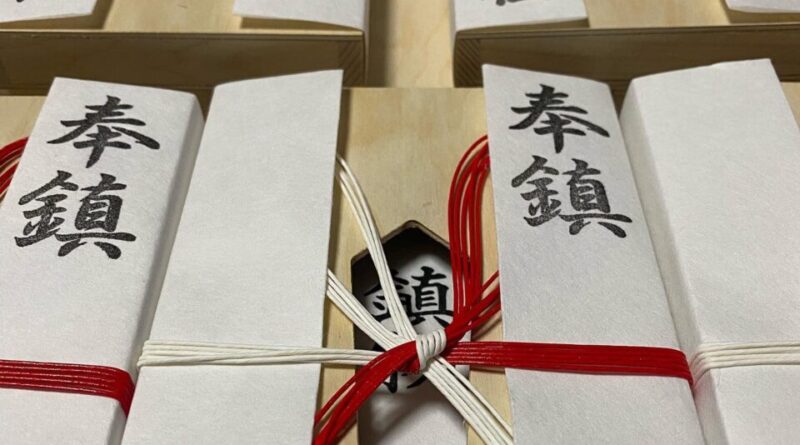 奉鎮
鎮
奉鎮